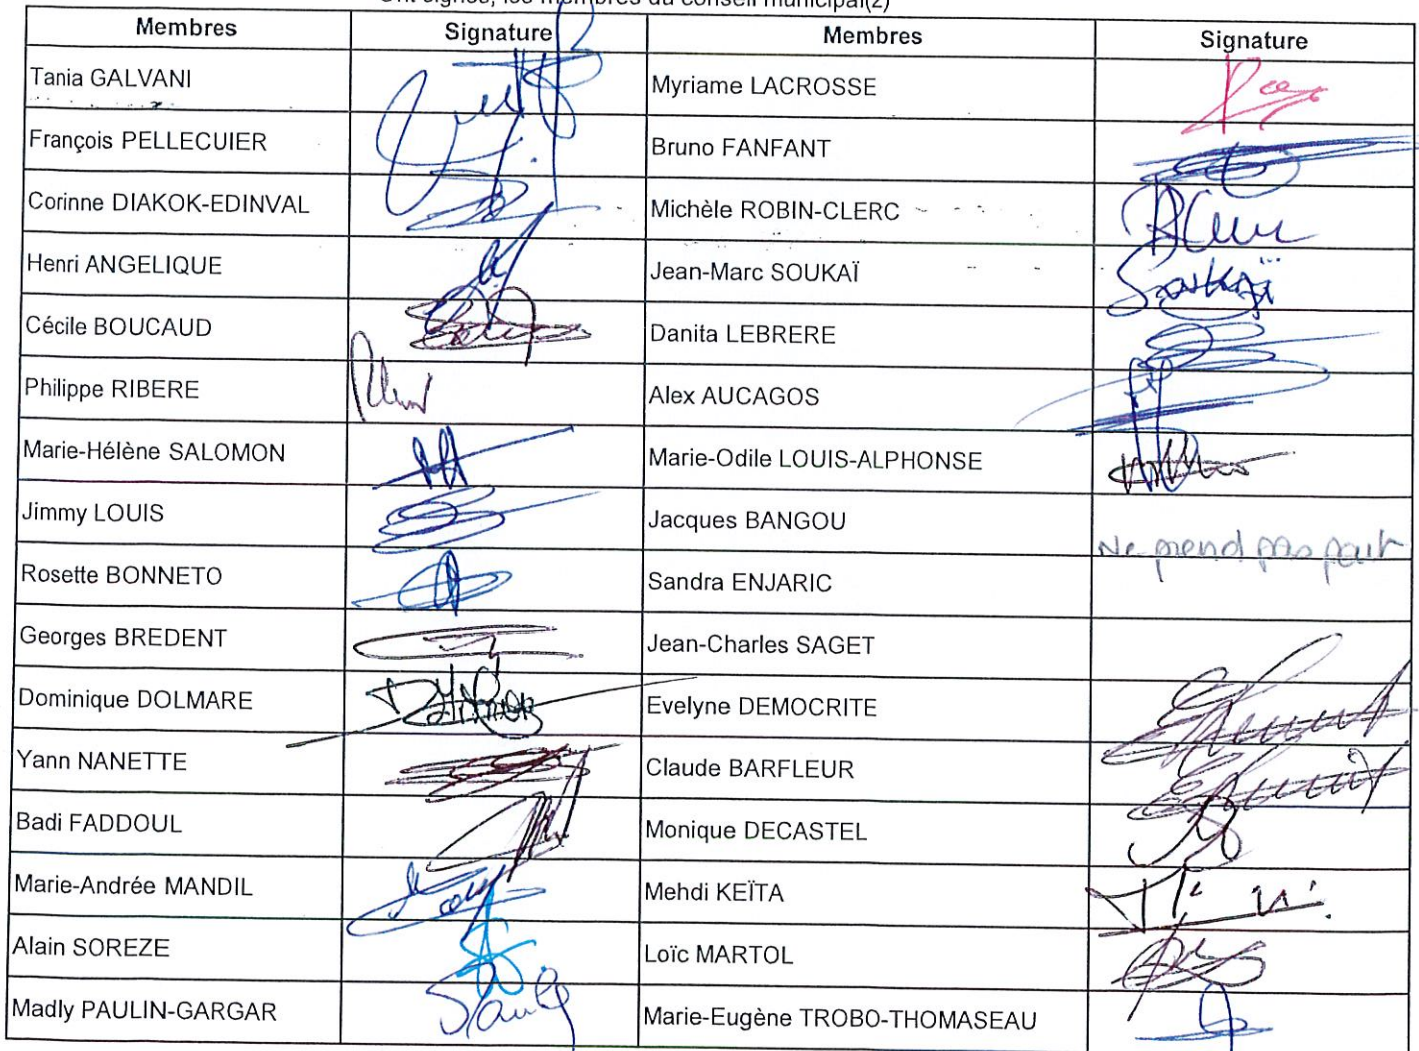 Ont signés, les membres du conseil municipal(2)
Membres Signature Membres Signature
Tania GALVANI Myriame LACROSSE
François PELLECUIER Bruno FANFANT
Corinne DIAKOK-EDINVAL Michèle ROBIN-CLERC
Henri ANGELIQUE Jean-Marc SOUKAÏ Soukaï
Cécile BOUCAUD Danita LEBRERE
Philippe RIBERE Alex AUCAGOS
Marie-Hélène SALOMON Marie-Odile LOUIS-ALPHONSE
Jimmy LOUIS Jacques BANGOU Ne prend pas part
Rosette BONNETO Sandra ENJARIC
Georges BREDENT Jean-Charles SAGET
Dominique DOLMARE Evelyne DEMOCRITE
Yann NANETTE Claude BARFLEUR
Badi FADDOUL Monique DECASTEL
Marie-Andrée MANDIL Mehdi KEÏTA
Alain SOREZE Loïc MARTOL
Madly PAULIN-GARGAR Marie-Eugène TROBO-THOMASEAU